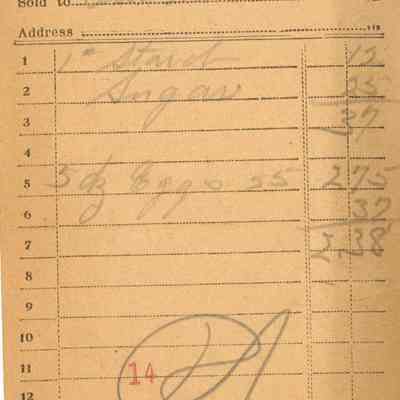 Sold to
Address
1 1# Starch 12
2 Sugar 25
3 37
4
5 5 dz Eggs 55 275
6 37
7 2.38
8
9
10
11 14
12